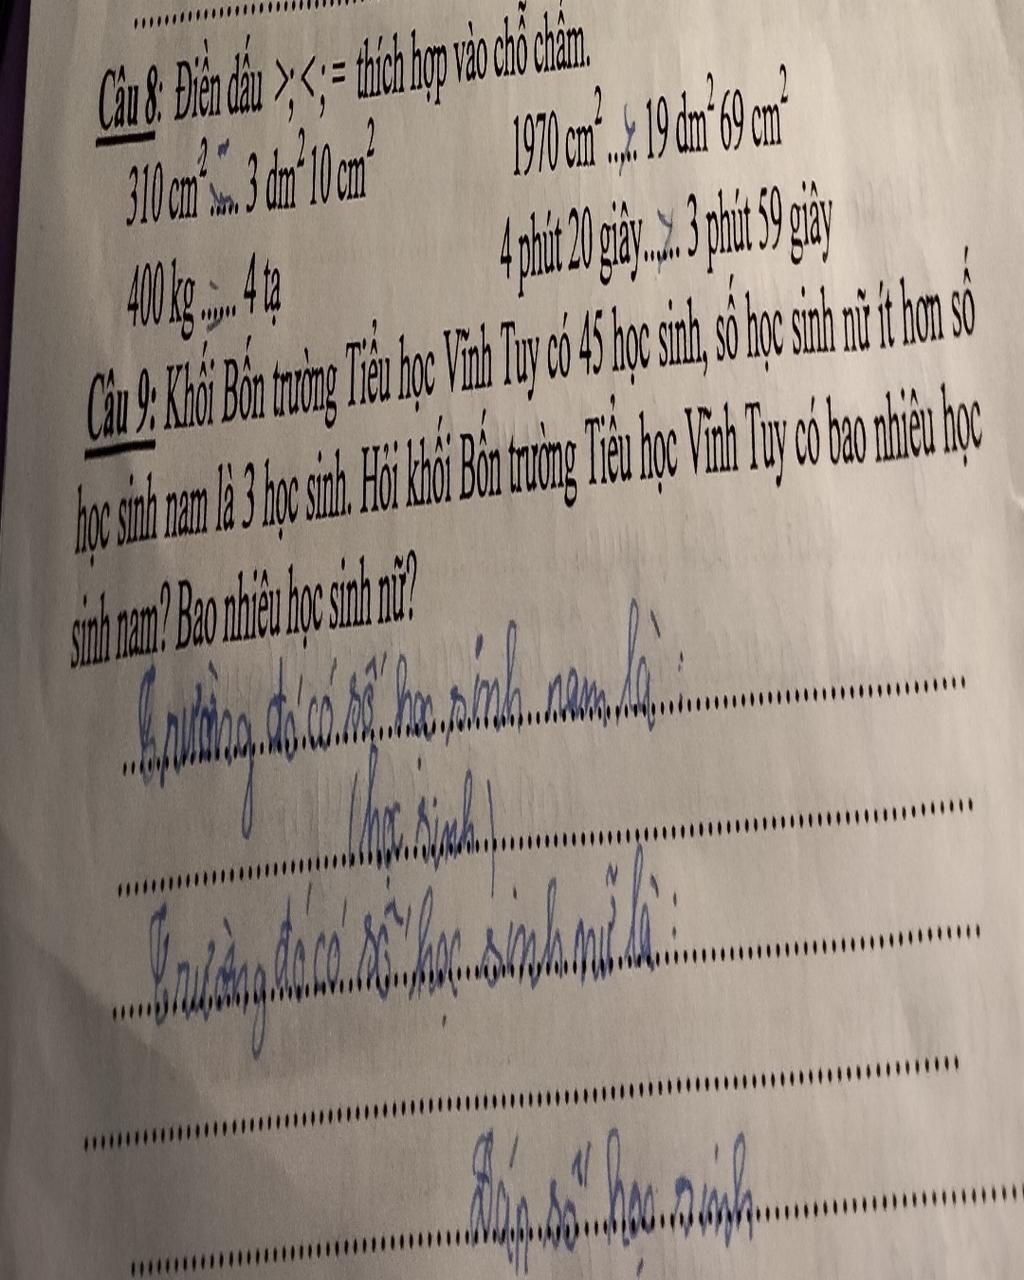 Câu 8: Điền dấu >;<;= thích hợp vào chỗ chấm.
310 cm² ...... 3 dm² 10 cm² 1970 cm² ..>... 19 dm² 69 cm²
400 kg ...... 4 tạ 4 phút 20 giây..>... 3 phút 59 giây
Câu 9: Khối Bốn trường Tiểu học Vĩnh Tuy có 45 học sinh, số học sinh nữ ít hơn số
học sinh nam là 3 học sinh. Hỏi khối Bốn trường Tiểu học Vĩnh Tuy có bao nhiêu học
sinh nam? Bao nhiêu học sinh nữ?
Trường đó có số học sinh nam là :
(học sinh)
Trường đó có số học sinh nữ là :
Đáp số học sinh